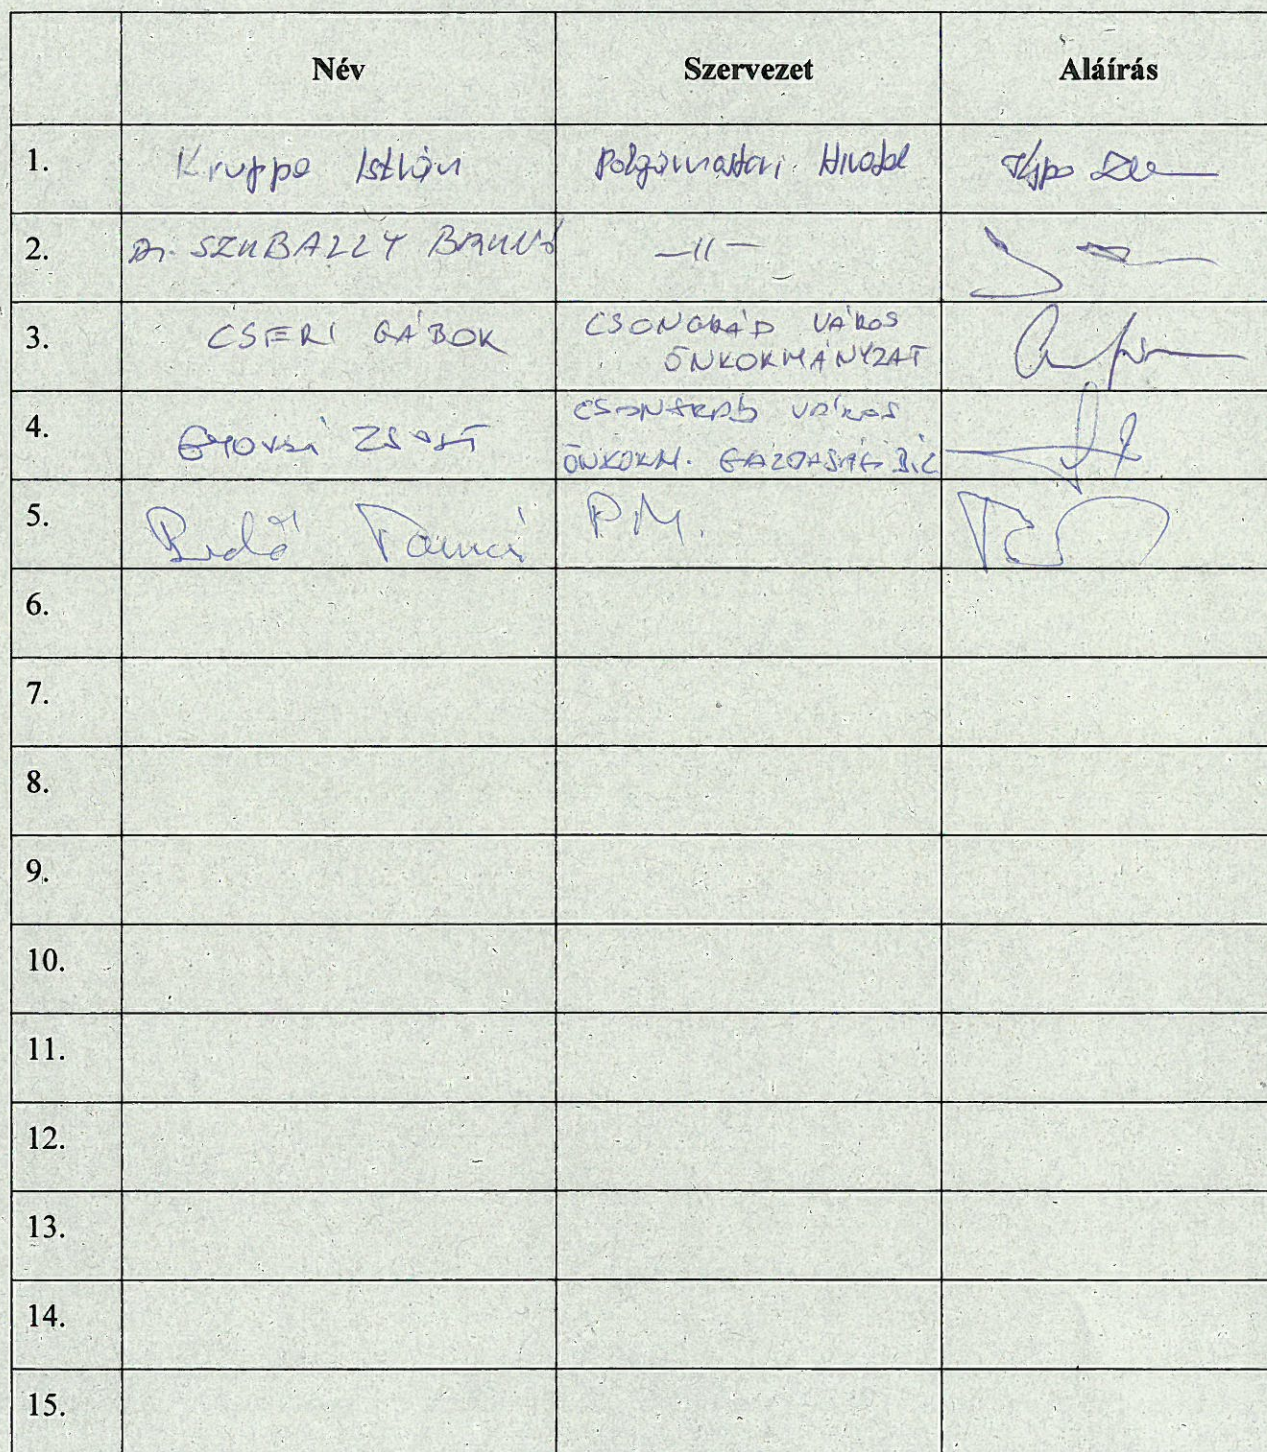 Név Szervezet Aláírás
1. Kruppa István Polgármesteri Hivatal
2. Dr. SZUBALLY BRÚNÓ —II—
3. CSERI GÁBOR CSONGRÁD VÁROS
ÖNKORMÁNYZAT
4. ZSOLT CSONGRÁD VÁROS
ÖNKORM. GAZDASÁGI BIZ
5. Tamás P.M.
6.
7.
8.
9.
10.
11.
12.
13.
14.
15.